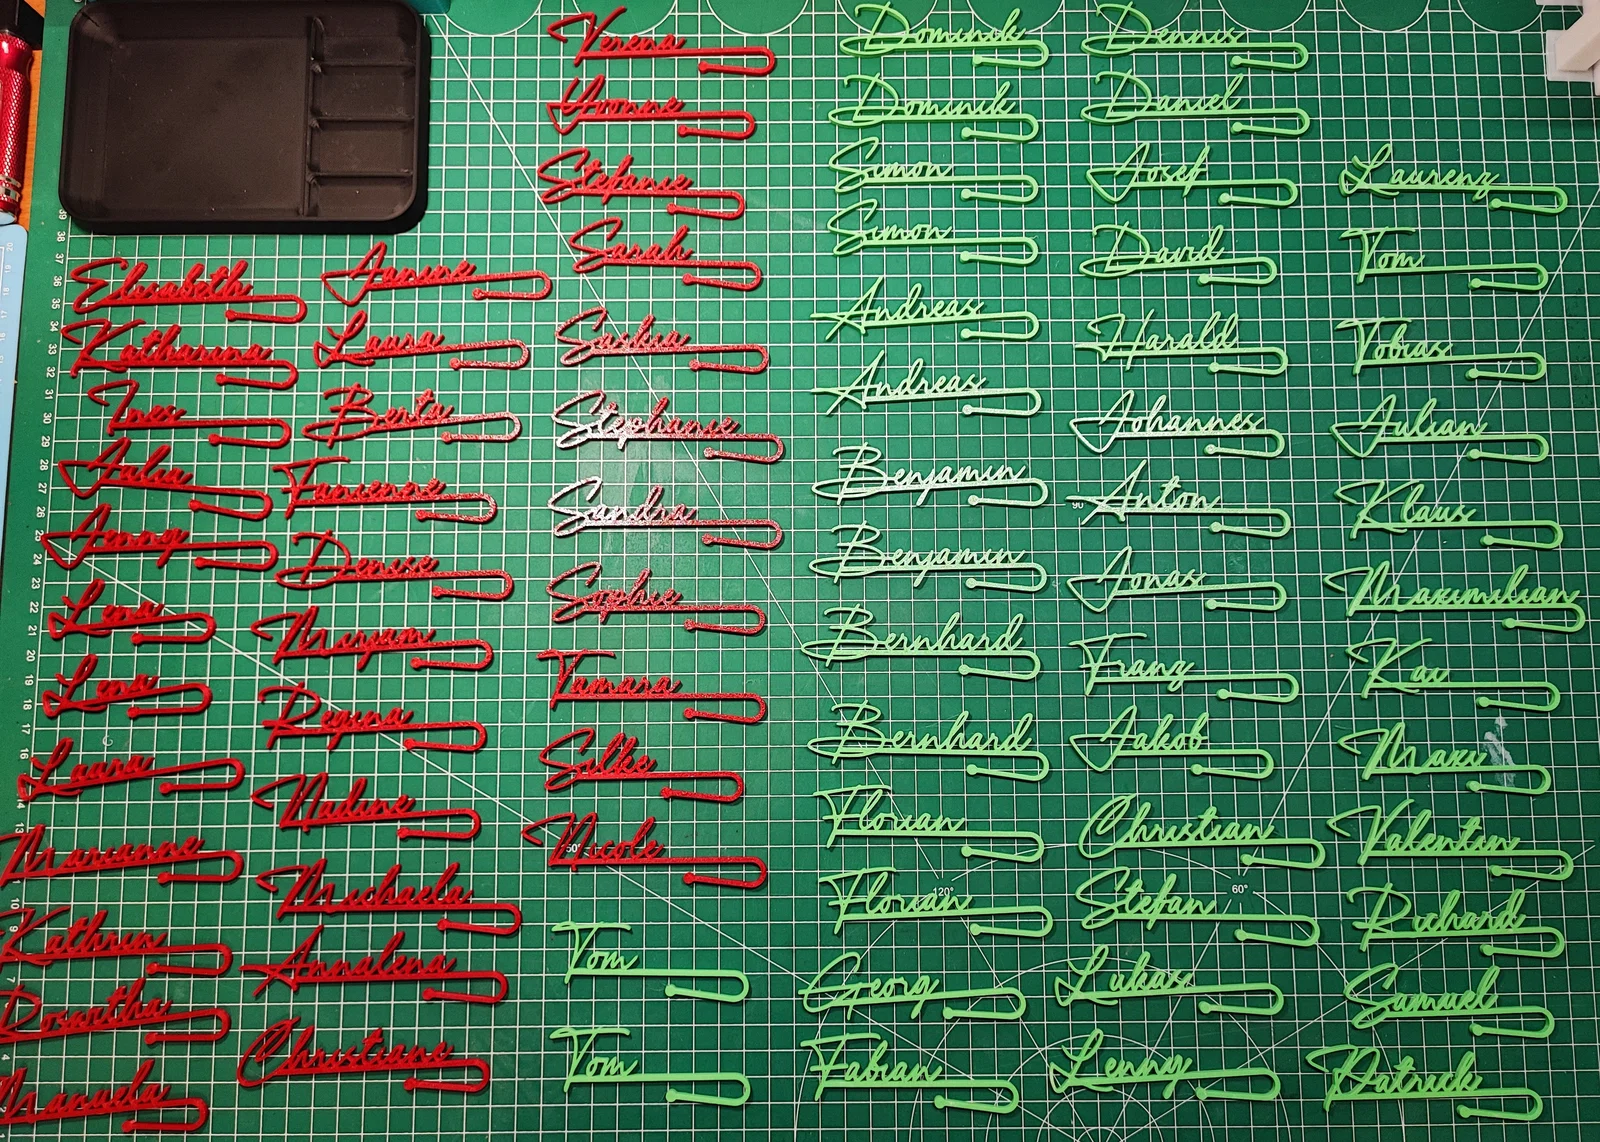 Elisabeth
Katharina
Ines
Julia
Jenny
Lena
Lena
Laura
Marianne
Kathrin
Roswitha
Manuela
Janine
Laura
Berta
Fabienne
Denise
Mirjam
Regina
Nadine
Michaela
Annalena
Christiane
Verena
Yvonne
Stefanie
Sarah
Saskia
Stephanie
Sandra
Sophie
Tamara
Silke
Nicole
Tom
Tom
Dominik
Dominik
Simon
Simon
Andreas
Andreas
Benjamin
Benjamin
Bernhard
Bernhard
Florian
Florian
Georg
Fabian
Dennis
Daniel
Josef
David
Harald
Johannes
Anton
Jonas
Franz
Jakob
Christian
Stefan
Lukas
Lenny
Laurenz
Tom
Tobias
Julian
Klaus
Maximilian
Kai
Maxi
Valentin
Richard
Samuel
Patrick
39
38
37
36
35
34
33
32
31
30
29
28
27
26
25
24
23
22
21
20
19
18
17
16
14
13
90
120°
60°